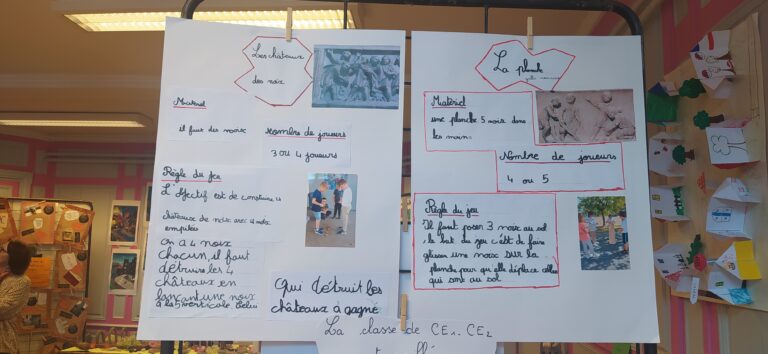 Les châteaux
des noix
Matériel
il faut des noix
Nombre de joueurs
3 ou 4 joueurs
Règle du jeu
L'objectif est de construire 4
châteaux de noix avec 4 noix
empilées
on a 4 noix
chacun, il faut
détruire les 4
châteaux en
lançant une noix
à la 5
Qui détruit les
châteaux à gagné
La planche
Matériel
une planche 5 noix dans
les mains
Nombre de joueurs
4 ou 5
Règle du jeu
Il faut poser 3 noix au sol
le but du jeu c'est de faire
glisser une noix sur la
planche pour qu'elle déplace celles
qui sont au sol
La classe de CE1-CE2